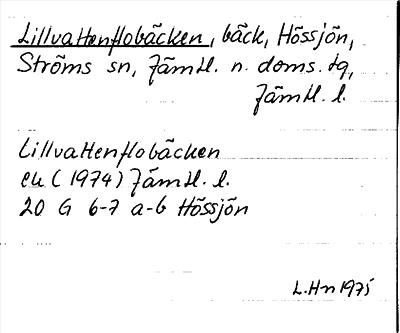 Lillvattenflobäcken, bäck, Hössjön,
Ströms sn, Jämtl. n. doms. tg,
Jämtl. l.
Lillvattenflobäcken
ek (1974) Jämtl. l.
20 G 6-7 a-b Hössjön
L.Hn 1975